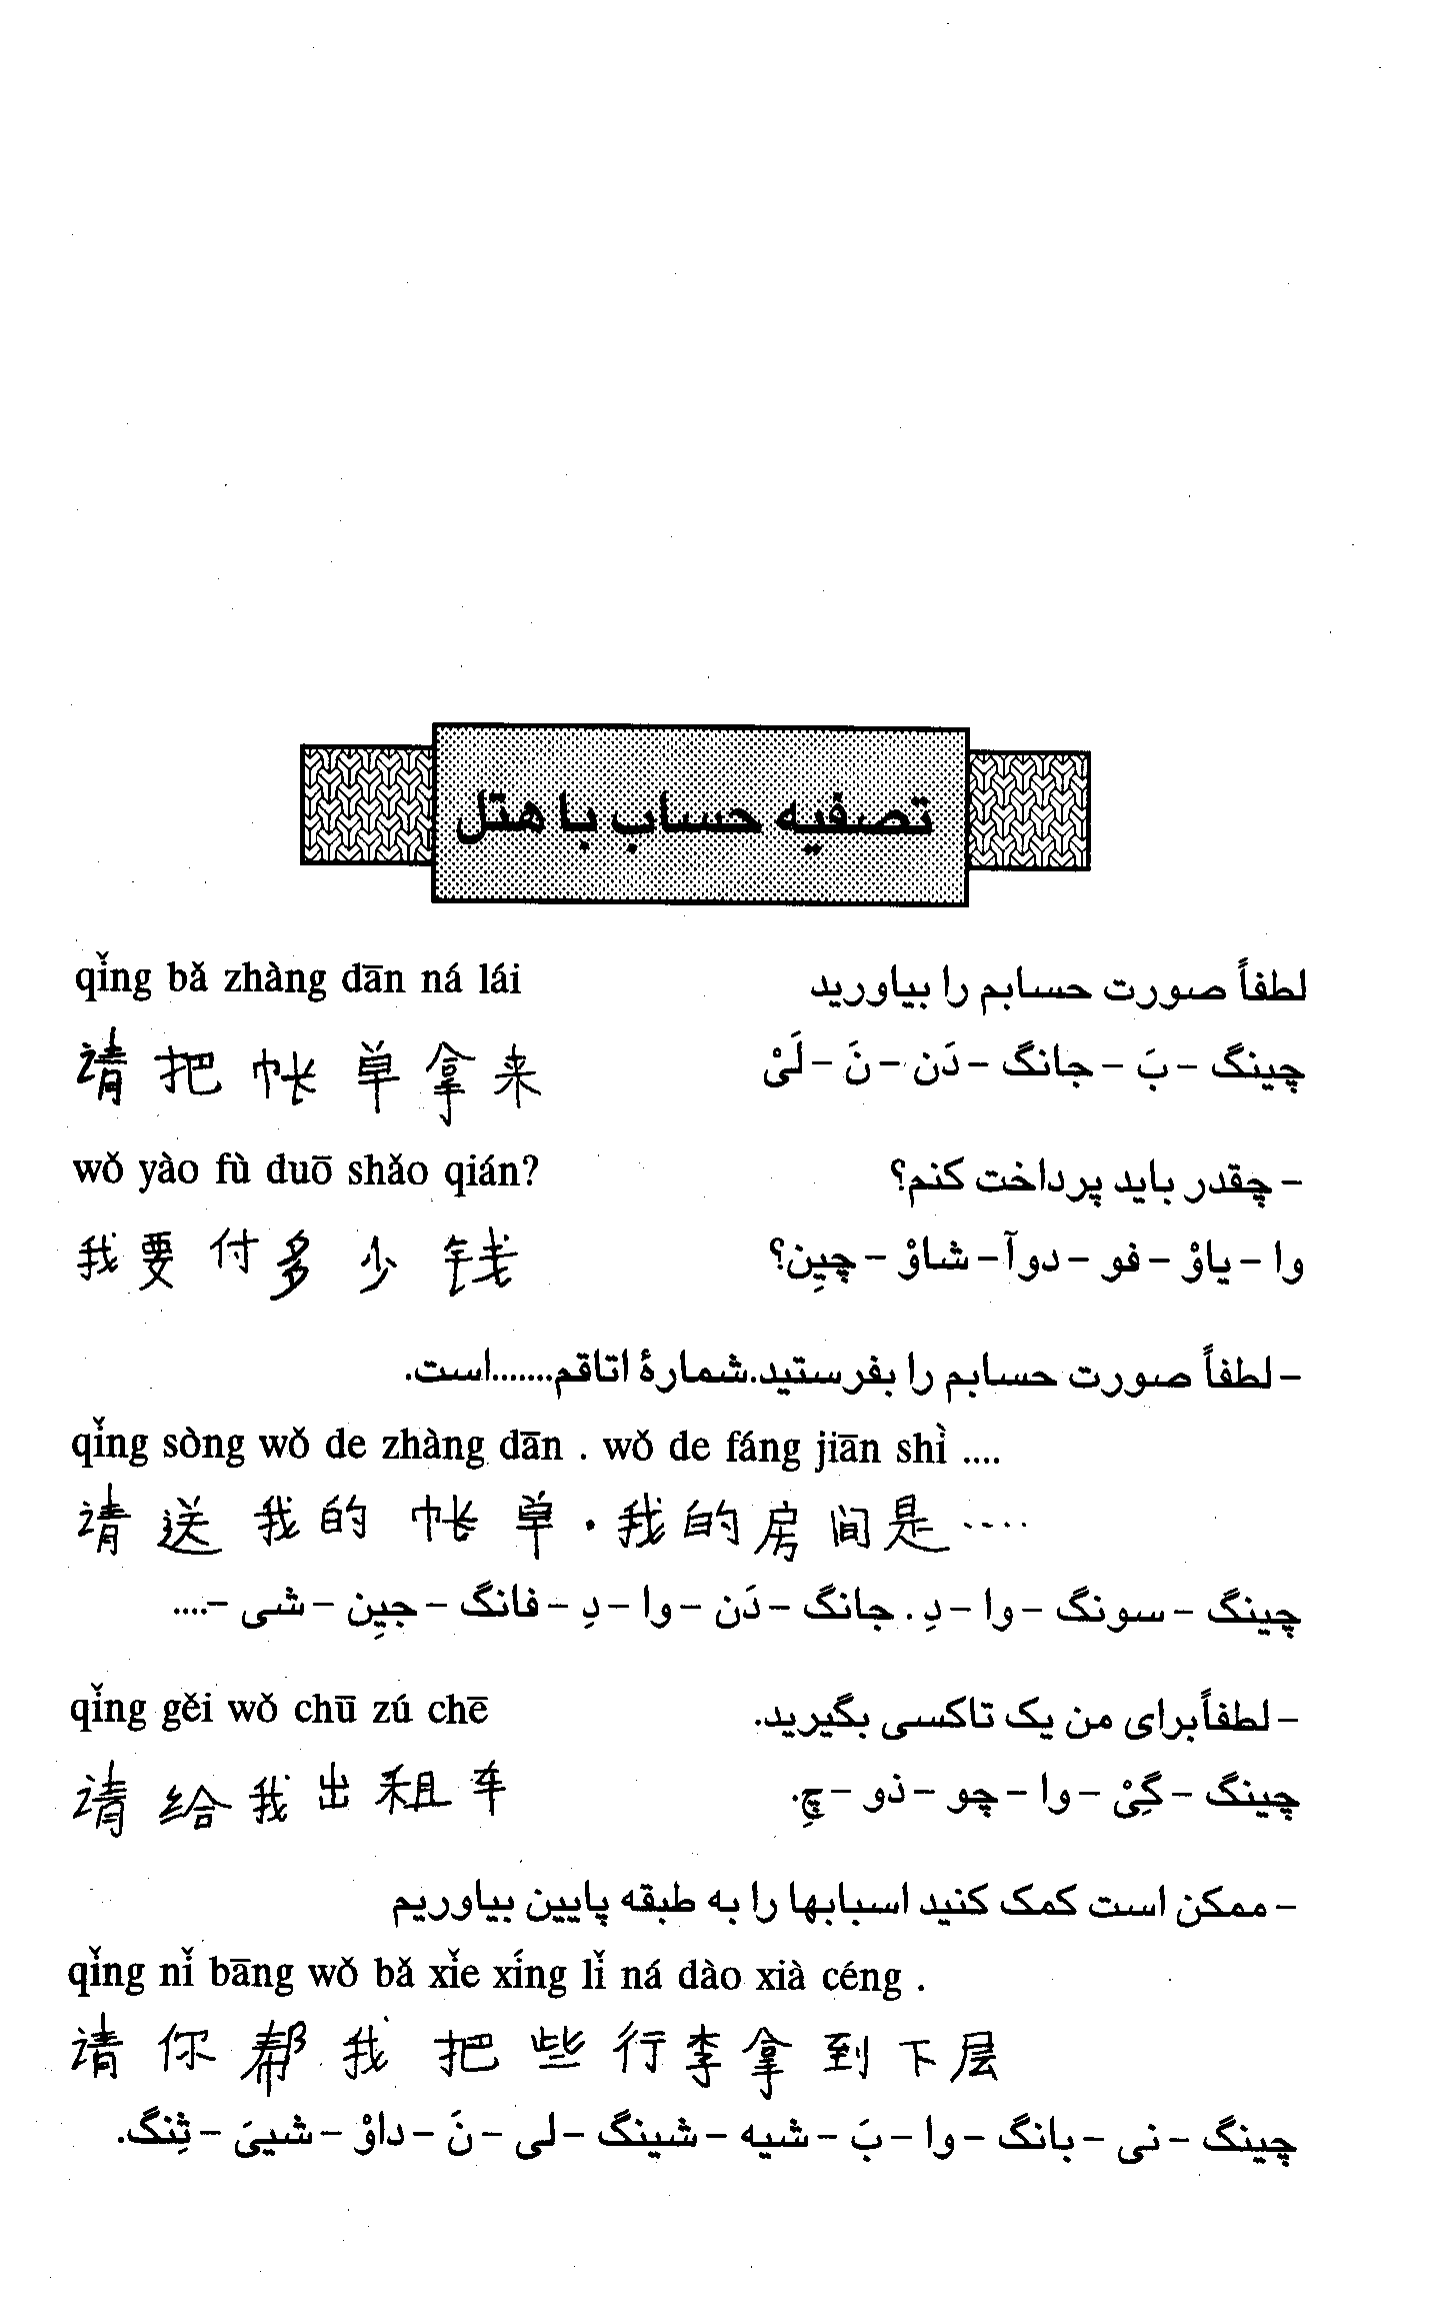 تصفیه حساب با هتل
لطفاً صورت حسابم را بیاورید
qǐng bǎ zhàng dān ná lái
چینگ – بَ – جانگ – دَن – نَ – لَیْ
请 把 帐 单 拿 来
– چقدر باید پرداخت کنم؟
wǒ yào fù duō shǎo qián?
وا – یاوْ – فو – دوآ – شاوْ – چیِن؟
我 要 付 多 少 钱
– لطفاً صورت حسابم را بفرستید.شمارهٔ اتاقم.......است.
qǐng sòng wǒ de zhàng dān . wǒ de fáng jiān shì ....
请 送 我 的 帐 单 · 我 的 房 间 是 ····
چینگ – سونگ – وا – دِ . جانگ – دَن – وا – دِ – فانگ – جیِن – شی –....
– لطفاًبرای من یک تاکسی بگیرید.
qǐng gěi wǒ chū zú chē
چینگ – گِیْ – وا – چو – ذو – چِ.
请 给 我 出 租 车
– ممکن است کمک کنید اسبابها را به طبقه پایین بیاوریم
qǐng nǐ bāng wǒ bǎ xǐe xíng lǐ ná dào xià céng .
请 你 帮 我 把 些 行 李 拿 到 下 层
چینگ – نی – بانگ – وا – بَ – شیه – شینگ – لی – نَ – داوْ – شییَ – ثِنگ.